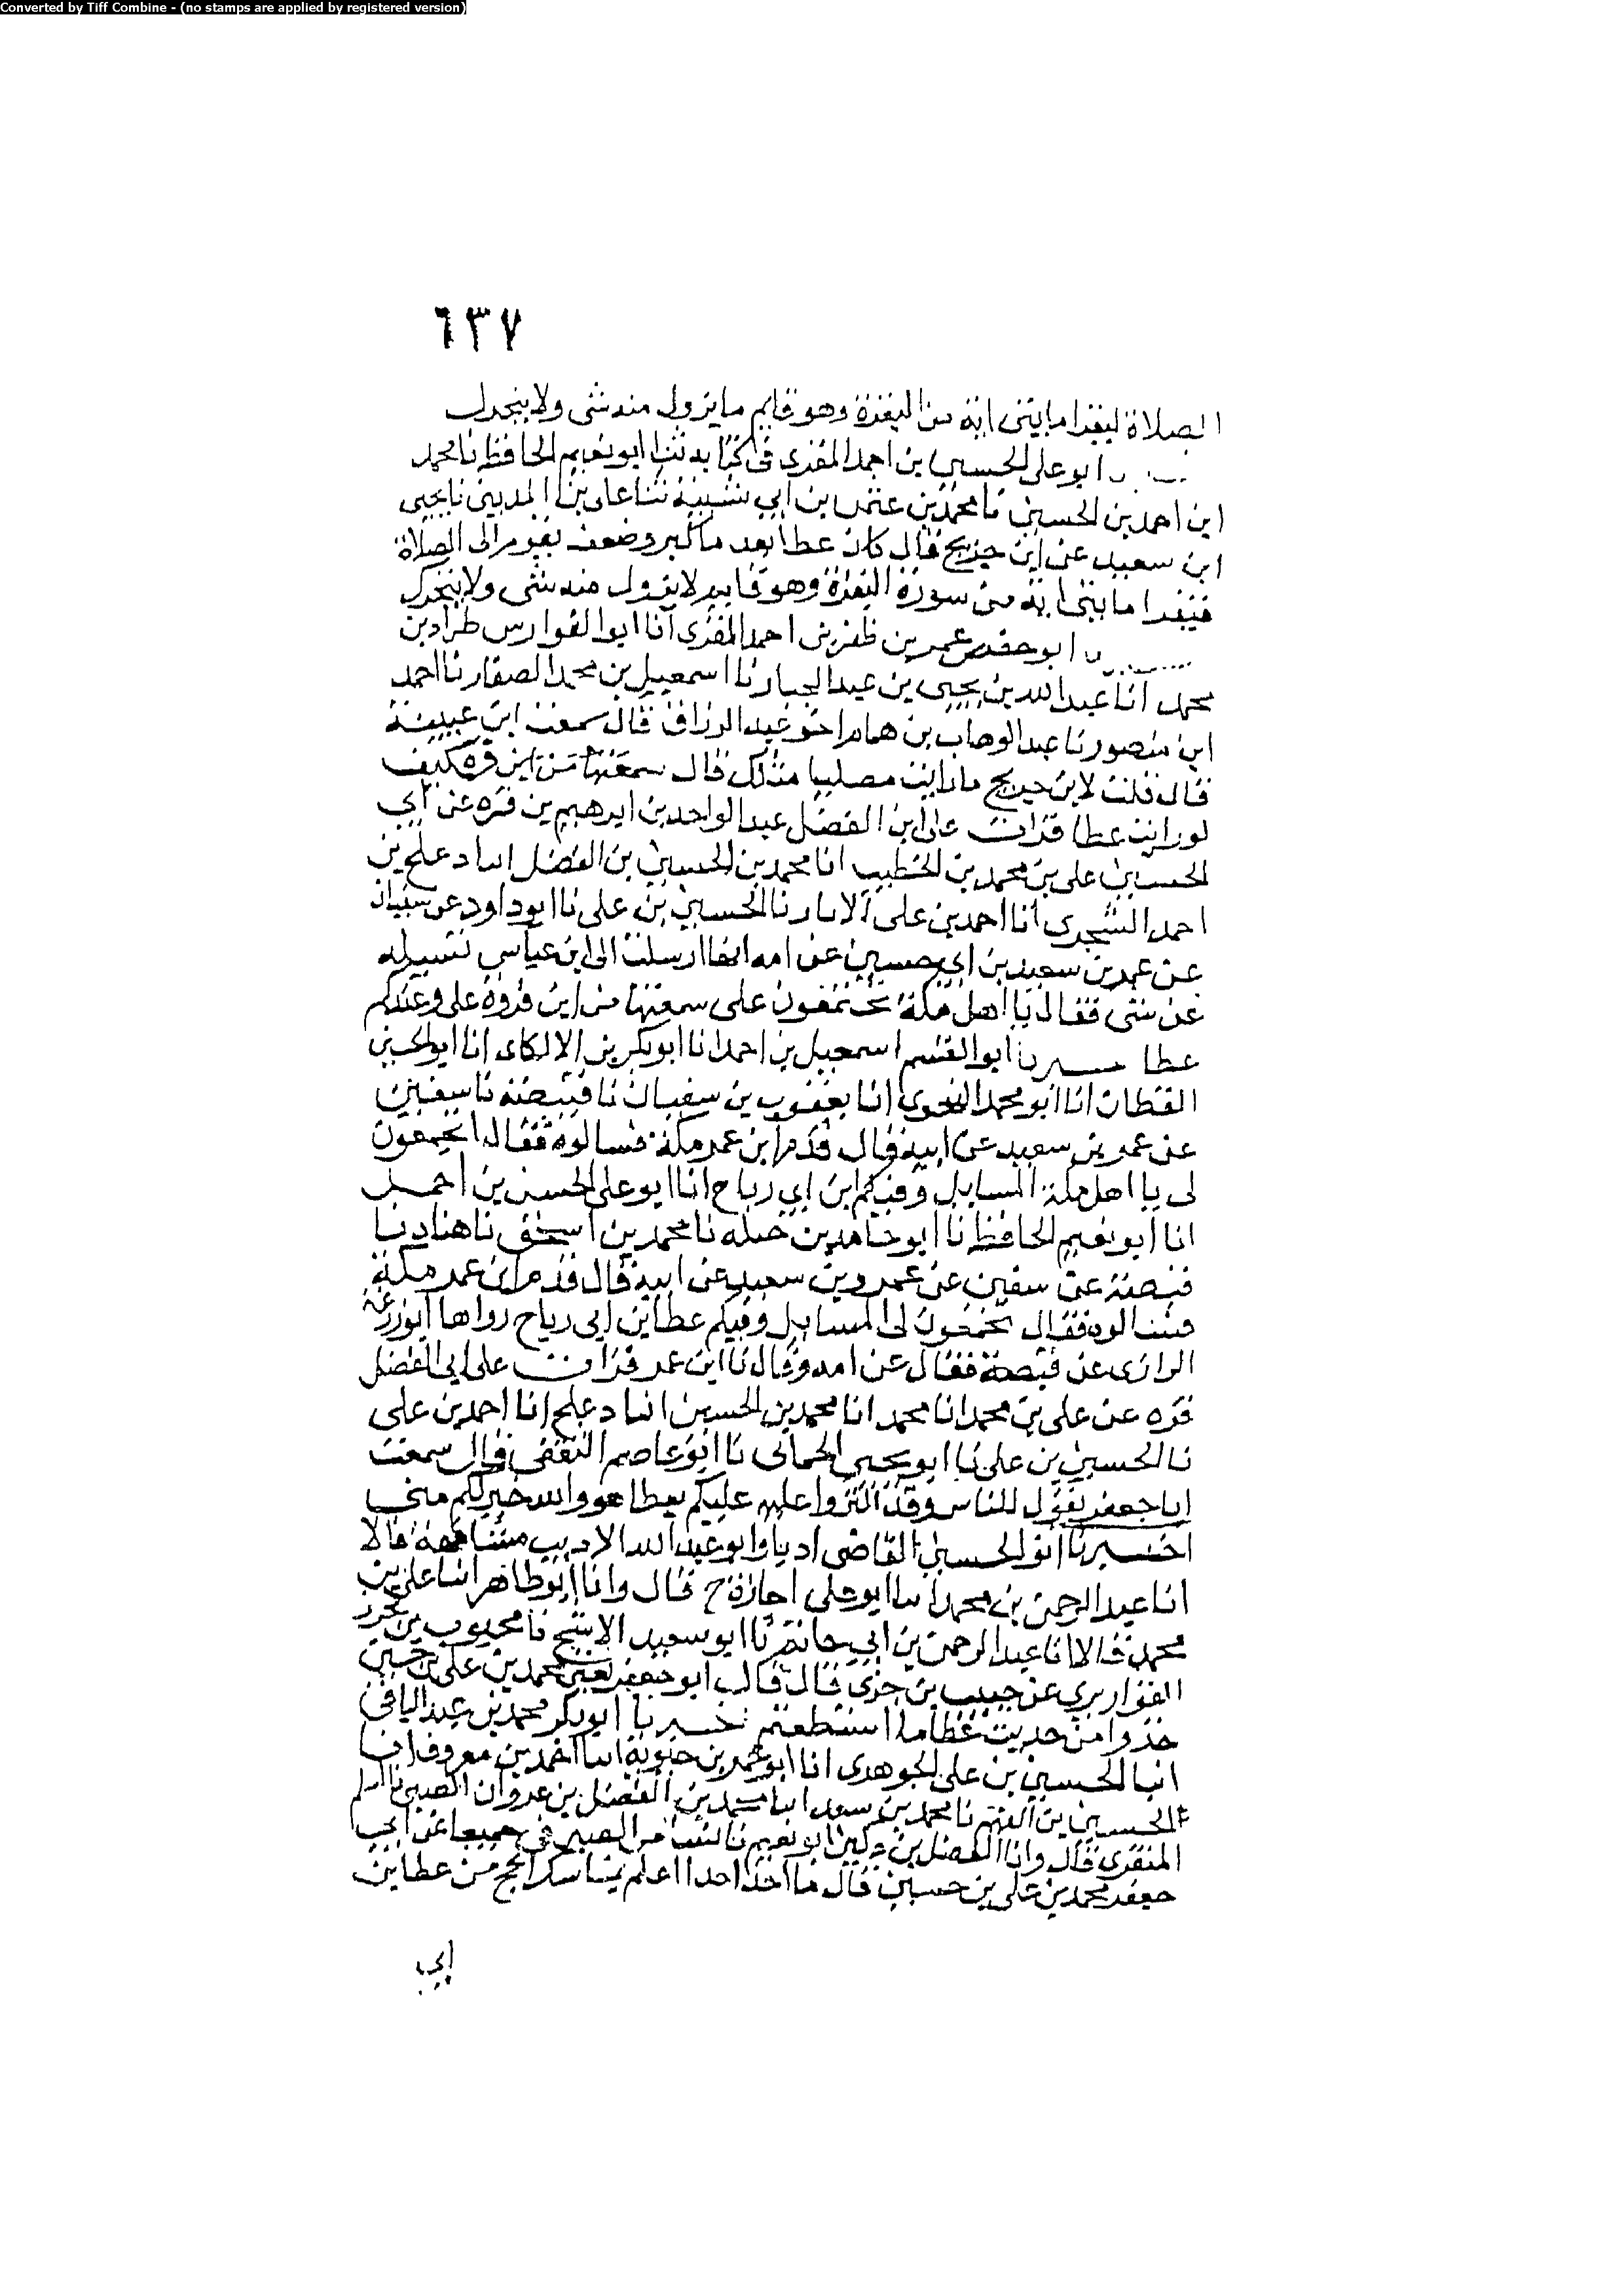 Converted by Tiff Combine - (no stamps are applied by registered version)
٦٣٧
الصلاة ليقرا مايتى اية من البقرة وهو قايم ما يزول منه شى ولا يتحرك
ابو على الحسين بن احمد المقرى فى كتابه ثنا ابو نعيم الحافظ نا محمد
ابن احمد بن الحسين نا محمد بن عثمن بن ابي شيبة ثنا على بن المدينى نا يحيى
ابن سعيد عن ابن جريج قال كان عطا بعد ما كبر وضعف يقوم الى الصلاة
فيقرا مايتى اية من سورة البقرة وهو قايم لا يزول منه شى ولا يتحرك
ابو حفص عمر بن ظفر بن احمد المقرى انا ابو الفوارس طراد بن
محمد انا عبد الله بن يحيى بن عبد الجبار نا اسمعيل بن محمد الصفار نا احمد
ابن منصور نا عبد الوهاب بن همام اخو عبد الرزاق قال سمعت ابن عيينة
قال قلت لابن جريج ما رايت مصليا مثلك قال سمعتها من ابن قره كيف
لو رايت عطا قرات على ابن الفضل عبد الواحد بن ابرهيم بن قره عن ابي
الحسين على بن محمد بن الخطيب انا محمد بن الحسين بن الفضل انبا دعلج بن
احمد السجزى انا احمد بن على الابار نا الحسين بن على نا ابو داود عن سفيان
عن عمر بن سعيد بن ابي حسين عن امه انها ارسلت الى ابن عباس تسيله
عن شى فقال يا اهل مكة تجتمعون على سمعتها من ابن قروة على وعندكم
عطا ـبرنا ابو القسم اسمعيل بن احمد انا ابو بكر بن الالكاى انا ابو الحسين
القطان انا ابو محمد النحوى انا يعقوب بن سفيان نا قبيصة نا سفين
عن عمر بن سعيد عن ابيه قال قدم ابن عمر مكة فسالوه فقال اتجمعون
لى يا اهل مكة المسايل وفيكم ابن ابي رباح انا ابو على الحسن بن احمد
انا ابو نعيم الحافظ نا ابو حامد بن جبله نا محمد بن اسحق نا هناد نا
قبيصة عن سفين عن عمرو بن سعيد عن ابيه قال قدم ابن عمر مكة
فسالوه فقال تجمعون لى المسايل وفيكم عطا بن ابى رباح رواها ابو زرعة
الرازى عن قبيصة فقال عن امه وقال نا ابن عمر قرات على ابى الفضل
قره عن على بن محمد انا محمد انا محمد بن الحسين انبا دعلج انا احمد بن على
نا الحسين بن على نا ابو يحيى الحمانى نا ابو عاصم الثقفى قال سمعت
ابا جعفر يقول للناس وقد اكثروا عليه عليكم بعطا هو والله خير لكم منى
اخبـرنا ابو الحسين القاضى اذنا وابو عبد الله الاديب مشافهة قالا
انا عبد الرحمن بن محمد انبا ابو على اجازة ح قال وانا ابو طاهر انبا على بن
محمد قالا انا عبد الرحمن بن ابى حاتم نا ابو سعيد الاشج نا محبوب بن محرز
القواريرى عن حبيب بن جزى قال قال ابو جعفر يعنى محمد بن على بن حسين
خذوا من حديث عطا ما استطعتم خـبرنا ابو بكر محمد بن عبد الباقى
انبا الحسين بن على الجوهرى انا ابو عمر بن حيوية انبا احمد بن معروف انا
الحسين بن الفهم نا محمد بن سعد انبا محمد بن الفضل بن غزوان الضبى نا اسلم
المنقرى قال وانا الفضل بن دكين ابو نعيم نا بسام الصيرفى جميعا عن ابى
جعفر محمد بن على بن حسين قال ما اخذ احدا اعلم بمناسك الحج من عطا بن
ابى